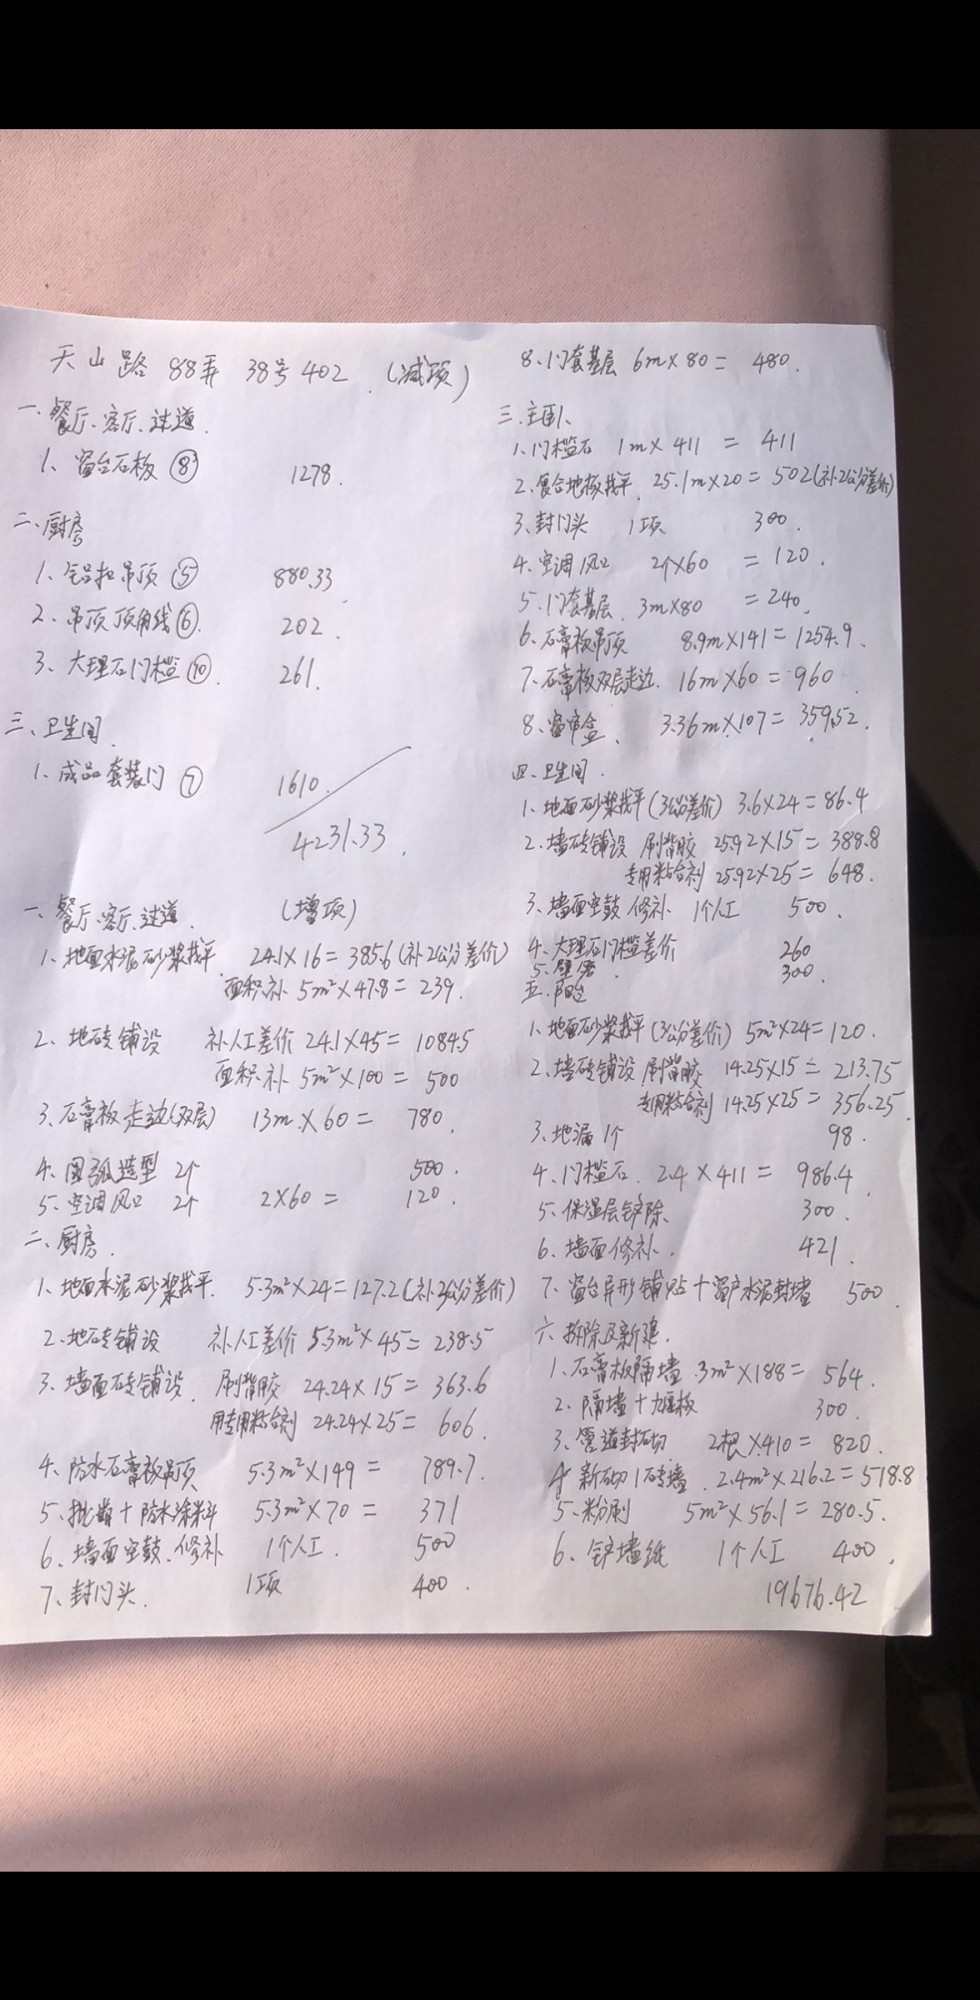 天山路 88弄 38号402 (减项)
一、餐厅、客厅、过道.
1、窗台石板 ⑧ 1278.
二、厨房
1、铝扣吊顶 ⑤ 880.33
2、吊顶顶角线 ⑥. 202.
3、大理石门槛 ⑩. 261.
三、卫生间.
1、成品套装门 ⑦ 1610.
4231.33.
一、餐厅、客厅、过道. (增项)
1、地面水泥砂浆找平. 24.1×16=385.6(补2公分差价)
面积补 5m²×47.8=239.
2、地砖铺设 补人工差价 24.1×45=1084.5
面积补 5m²×100=500
3、石膏板走边(双层) 13m×60= 780.
4、圆弧造型 2个 500.
5、空调风口 2个 2×60= 120.
二、厨房.
1、地面水泥砂浆找平. 5.3m²×24=127.2(补3公分差价)
2、地砖铺设 补人工差价 5.3m²×45=238.5
3、墙面砖铺设. 刷背胶 24.24×15=363.6
用专用粘合剂 24.24×25=606.
4、防水石膏板吊顶 5.3m²×149= 789.7.
5、批嵌+防水涂料 5.3m²×70= 371
6、墙面空鼓、修补 1个人工. 500
7、封门头. 1项 400.
8、门套基层 6m×80= 480.
三、主卧、
1、门槛石 1m×411= 411
2、复合地板找平. 25.1m×20=502(补2公分差价)
3、封门头 1项 300.
4、空调风口 2个×60 =120.
5、门套基层. 3m×80 =240.
6、石膏板吊顶 8.9m×141=1254.9.
7、石膏板双层走边. 16m×60=960.
8、窗帘盒. 3.36m×107=359.52.
四、卫生间.
1、地面砂浆找平(3公分差价) 3.6×24=86.4
2、墙砖铺设 刷背胶 25.92×15=388.8
专用粘合剂 25.92×25=648.
3、墙面空鼓修补 1个人工 500.
4、大理石门槛差价 260
5、壁龛. 300.
五、阳台
1、地面砂浆找平(3公分差价) 5m²×24=120.
2、墙砖铺设 刷背胶 14.25×15=213.75
专用粘合剂 14.25×25=356.25.
3、地漏1个 98.
4、门槛石. 2.4×411= 986.4.
5、保温层铲除、 300.
6、墙面修补. 421.
7、窗台异形铺贴+窗户水泥封堵 500.
六、拆除及新建.
1、石膏板隔墙 3m²×188=564.
2、隔墙+九厘板 300.
3、管道封砌 2根×410=820.
4、新砌1砖墙. 2.4m²×216.2=518.8
5、粉刷 5m²×56.1=280.5.
6、铲墙纸 1个人工 400.
19676.42